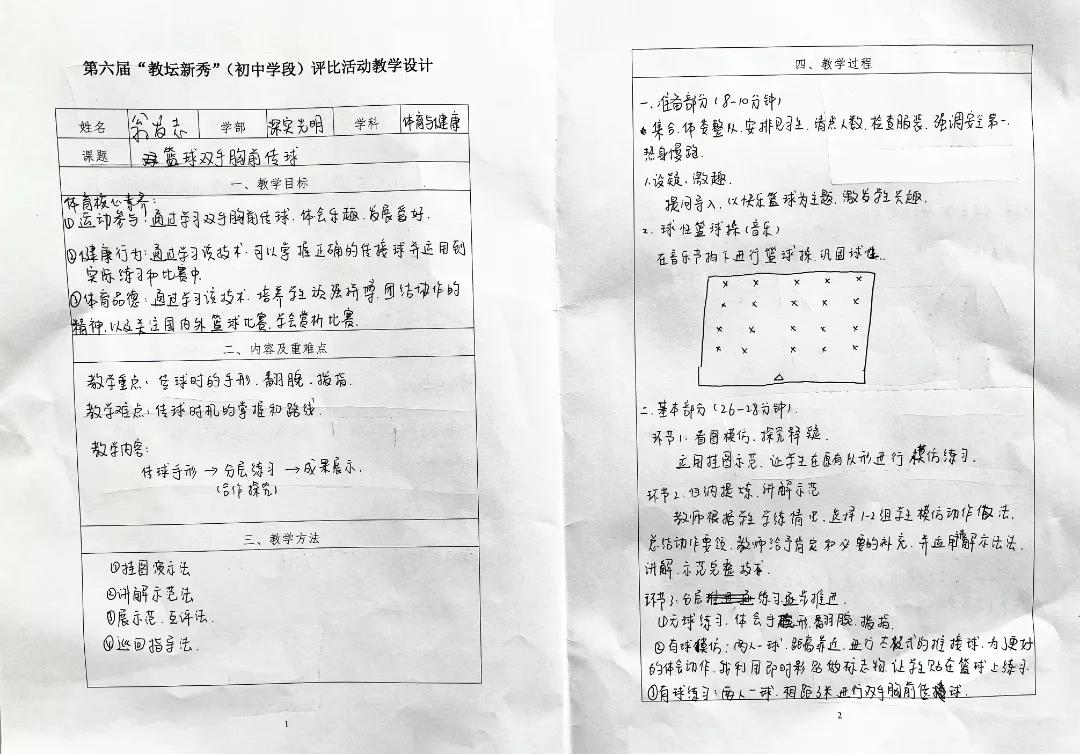 第六届“教坛新秀”（初中学段）评比活动教学设计
姓名 翁省志 学部 深实光明 学科 体育与健康
课题 篮球双手胸前传球
一、教学目标
体育核心素养：
①运动参与：通过学习双手胸前传球，体会乐趣，发展爱好．
②健康行为：通过学习该技术，可以掌握正确的传接球并运用到
实际练习和比赛中．
③体育品德：通过学习该技术，培养学生顽强拼搏，团结协作的
精神，以及关注国内外篮球比赛，学会赏析比赛．
二、内容及重难点
教学重点：传球时的手形、翻腕、拨指．
教学难点：传球时机的掌握和路线．
教学内容：
传球手形 → 分层练习 → 成果展示．
（合作探究）
三、教学方法
①挂图演示法
②讲解示范法
③展示范、互评法．
④巡回指导法．
1
四、教学过程
一．准备部分（8-10分钟）
集合，体委整队，安排见习生，请点人数，检查服装，强调安全第一，
热身慢跑．
1．设疑，激趣．
提问导入，以快乐篮球为主题，激发学生兴趣．
2．球性篮球操（音乐）
在音乐节拍下进行篮球操，巩固球性．
二．基本部分（26-28分钟）．
环节1：看图模仿，探究释疑．
运用挂图示范，让学生在原有队形进行模仿练习．
环节2．归纳提炼，讲解示范
教师根据学生学练情况，选择1-2组学生模仿动作做法，
总结动作要领，教师给予肯定和必要的补充，并运用讲解示法法，
讲解、示范完整技术．
环节3：分层练习逐步推进．
①无球练习，体会手形、翻腕、拨指．
②有球模仿：两人一球，距离靠近，进行不离式的推接球，为了更好
的体会动作，我利用即时彩色做标志物，让学生贴在篮球上练习．
③有球练习：两人一球，相距3米进行双手胸前传接球．
2